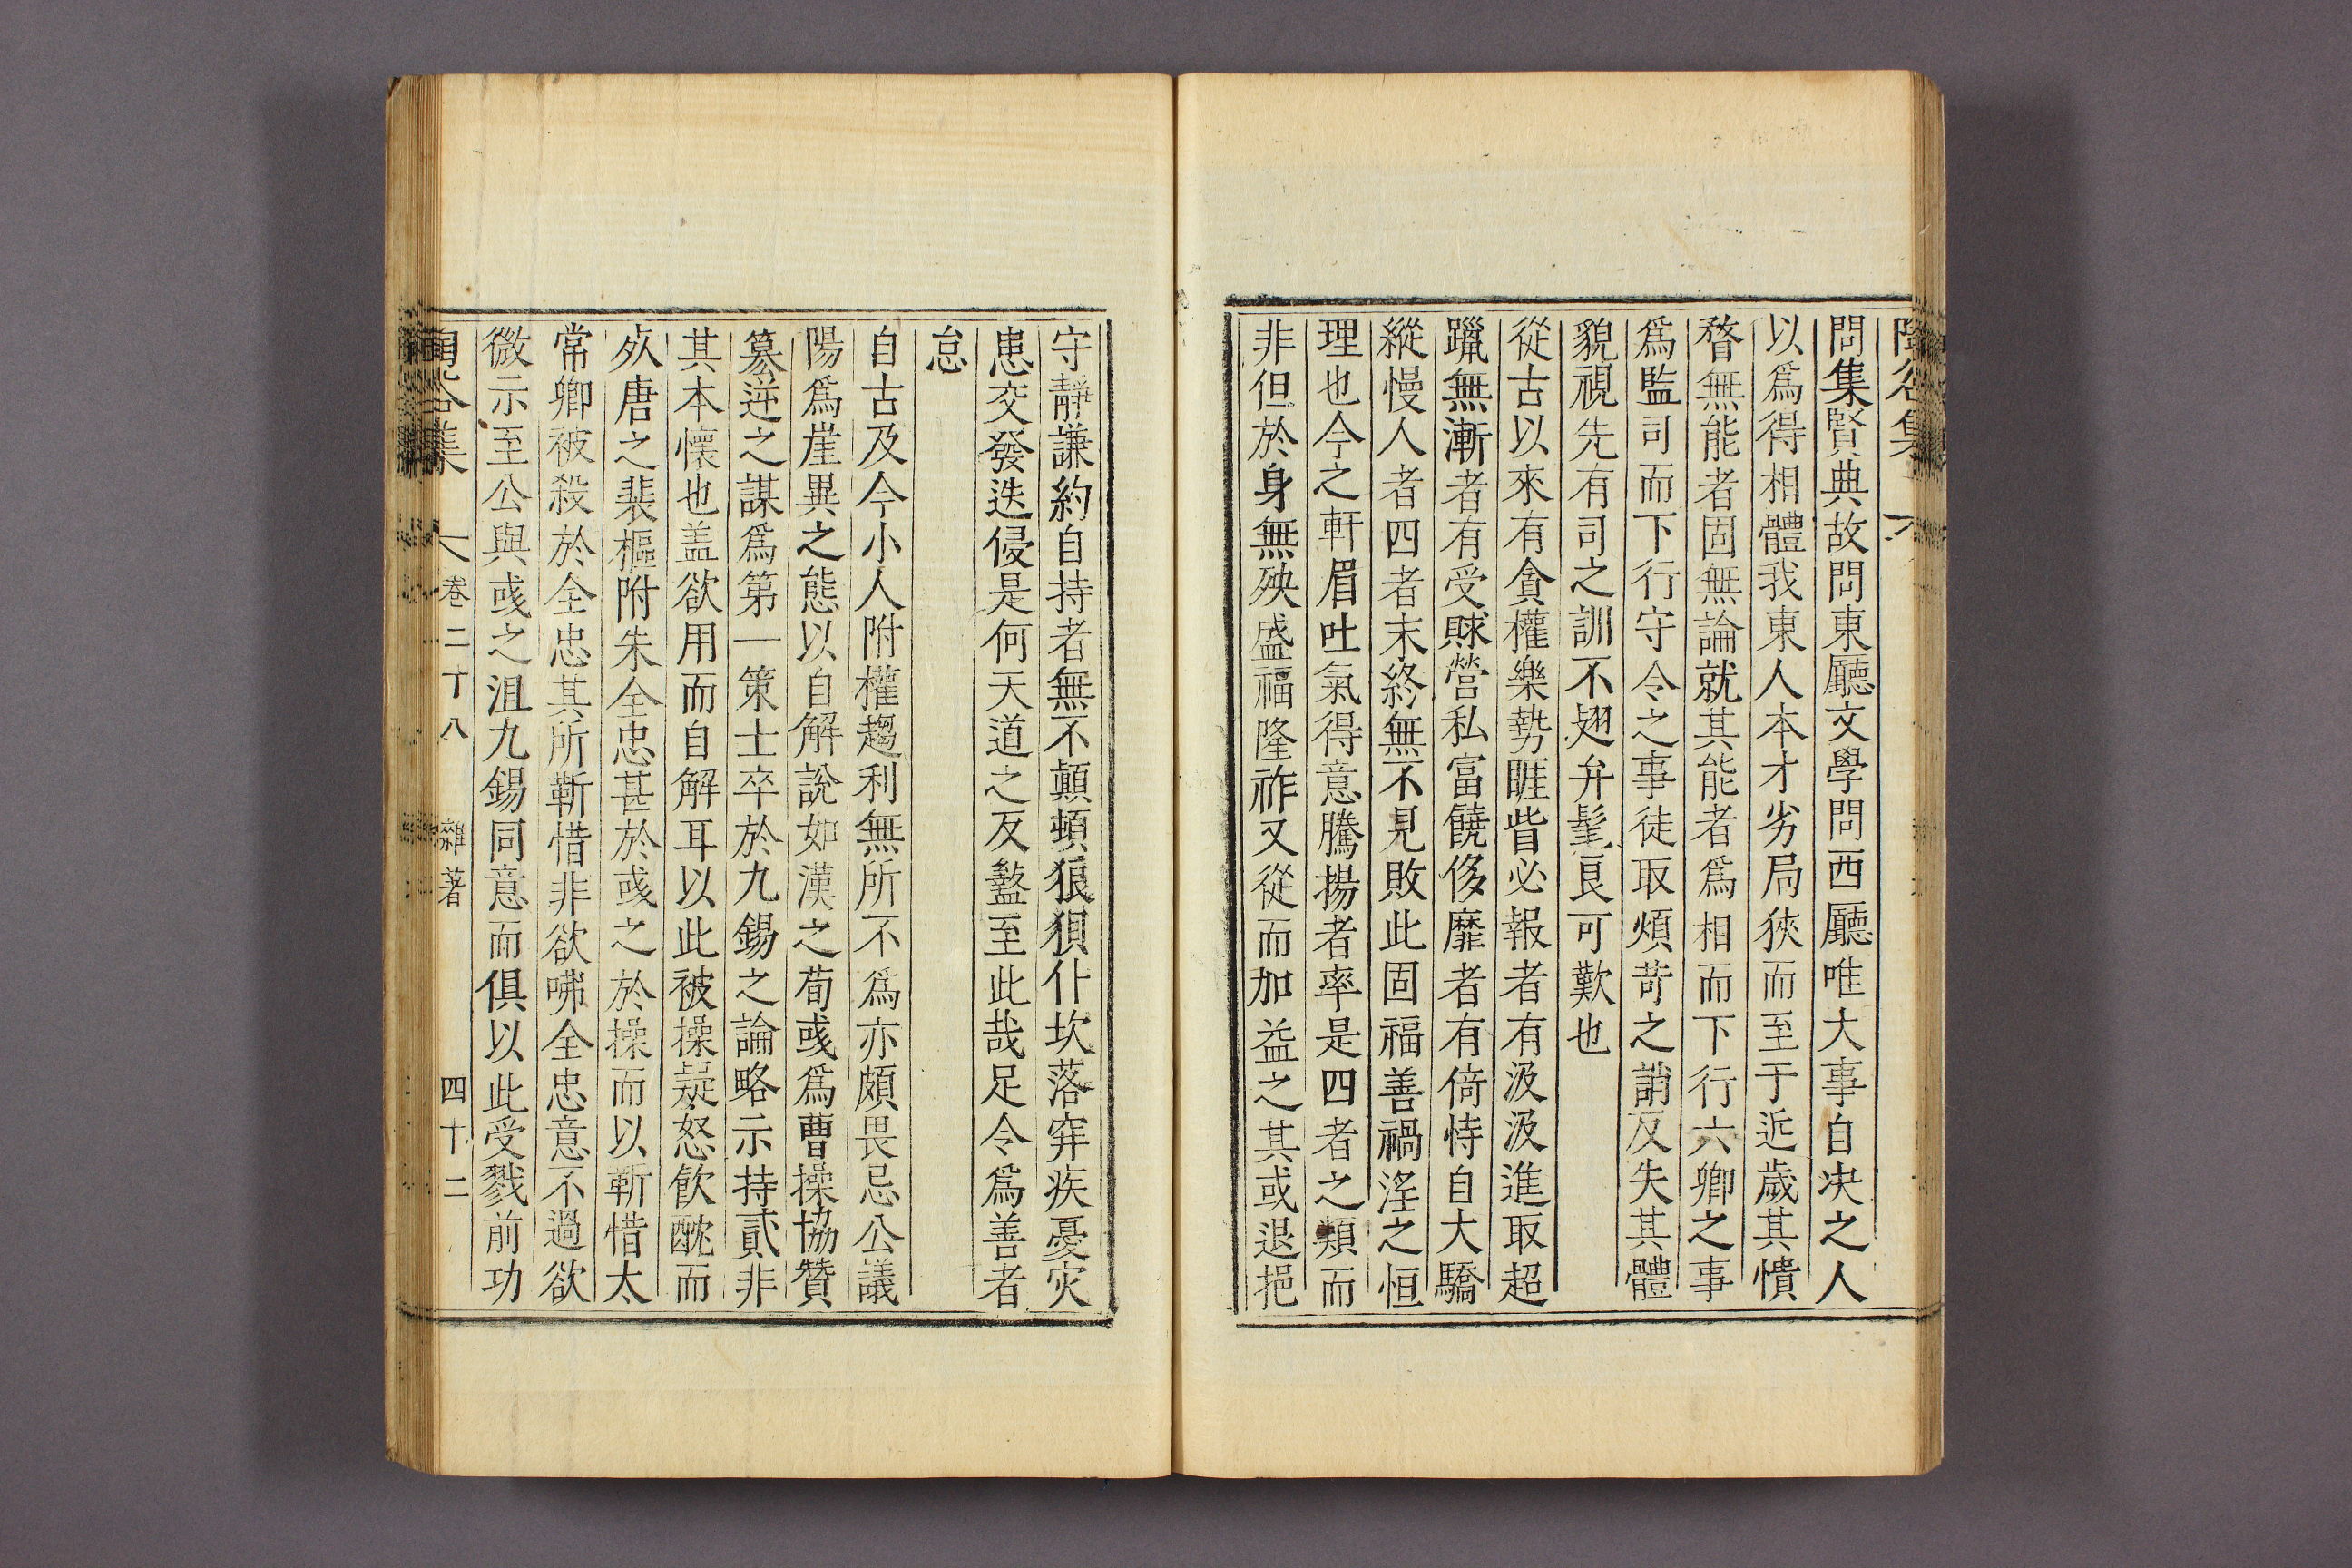 問集賢典故問東廳文學問西廳唯大事自决之人
以爲得相體我東人本才劣局狹而至于近歲其憒
瞀無能者固無論就其能者爲相而下行六卿之事
爲監司而下行守令之事徒取煩苛之誚反失其體
貌視先有司之訓不翅弁髦良可歎也
從古以來有貪權樂勢睚眥必報者有汲汲進取超
躐無漸者有受賕營私富饒侈靡者有倚恃自大驕
縱慢人者四者末終無不見敗此固福善禍淫之恒
理也今之軒眉吐氣得意騰揚者率是四者之類而
非但於身無殃盛福隆祚又從而加益之其或退挹
守靜謙約自持者無不顚頓狼狽仆坎落穽疾憂灾
患交發迭侵是何天道之反盭至此哉足令爲善者
怠
自古及今小人附權趨利無所不爲亦頗畏忌公議
陽爲崖異之態以自解說如漢之荀彧爲曹操協贊
簒逆之謀爲第一策士卒於九錫之論略示持貳非
其本懷也盖欲用而自解耳以此被操疑怒飮酖而
死唐之裴樞附朱全忠甚於彧之於操而以靳惜太
常卿被殺於全忠其所靳惜非欲咈全忠意不過欲
微示至公與彧之沮九錫同意而俱以此受戮前功
集 卷二十八 雜著 四十二